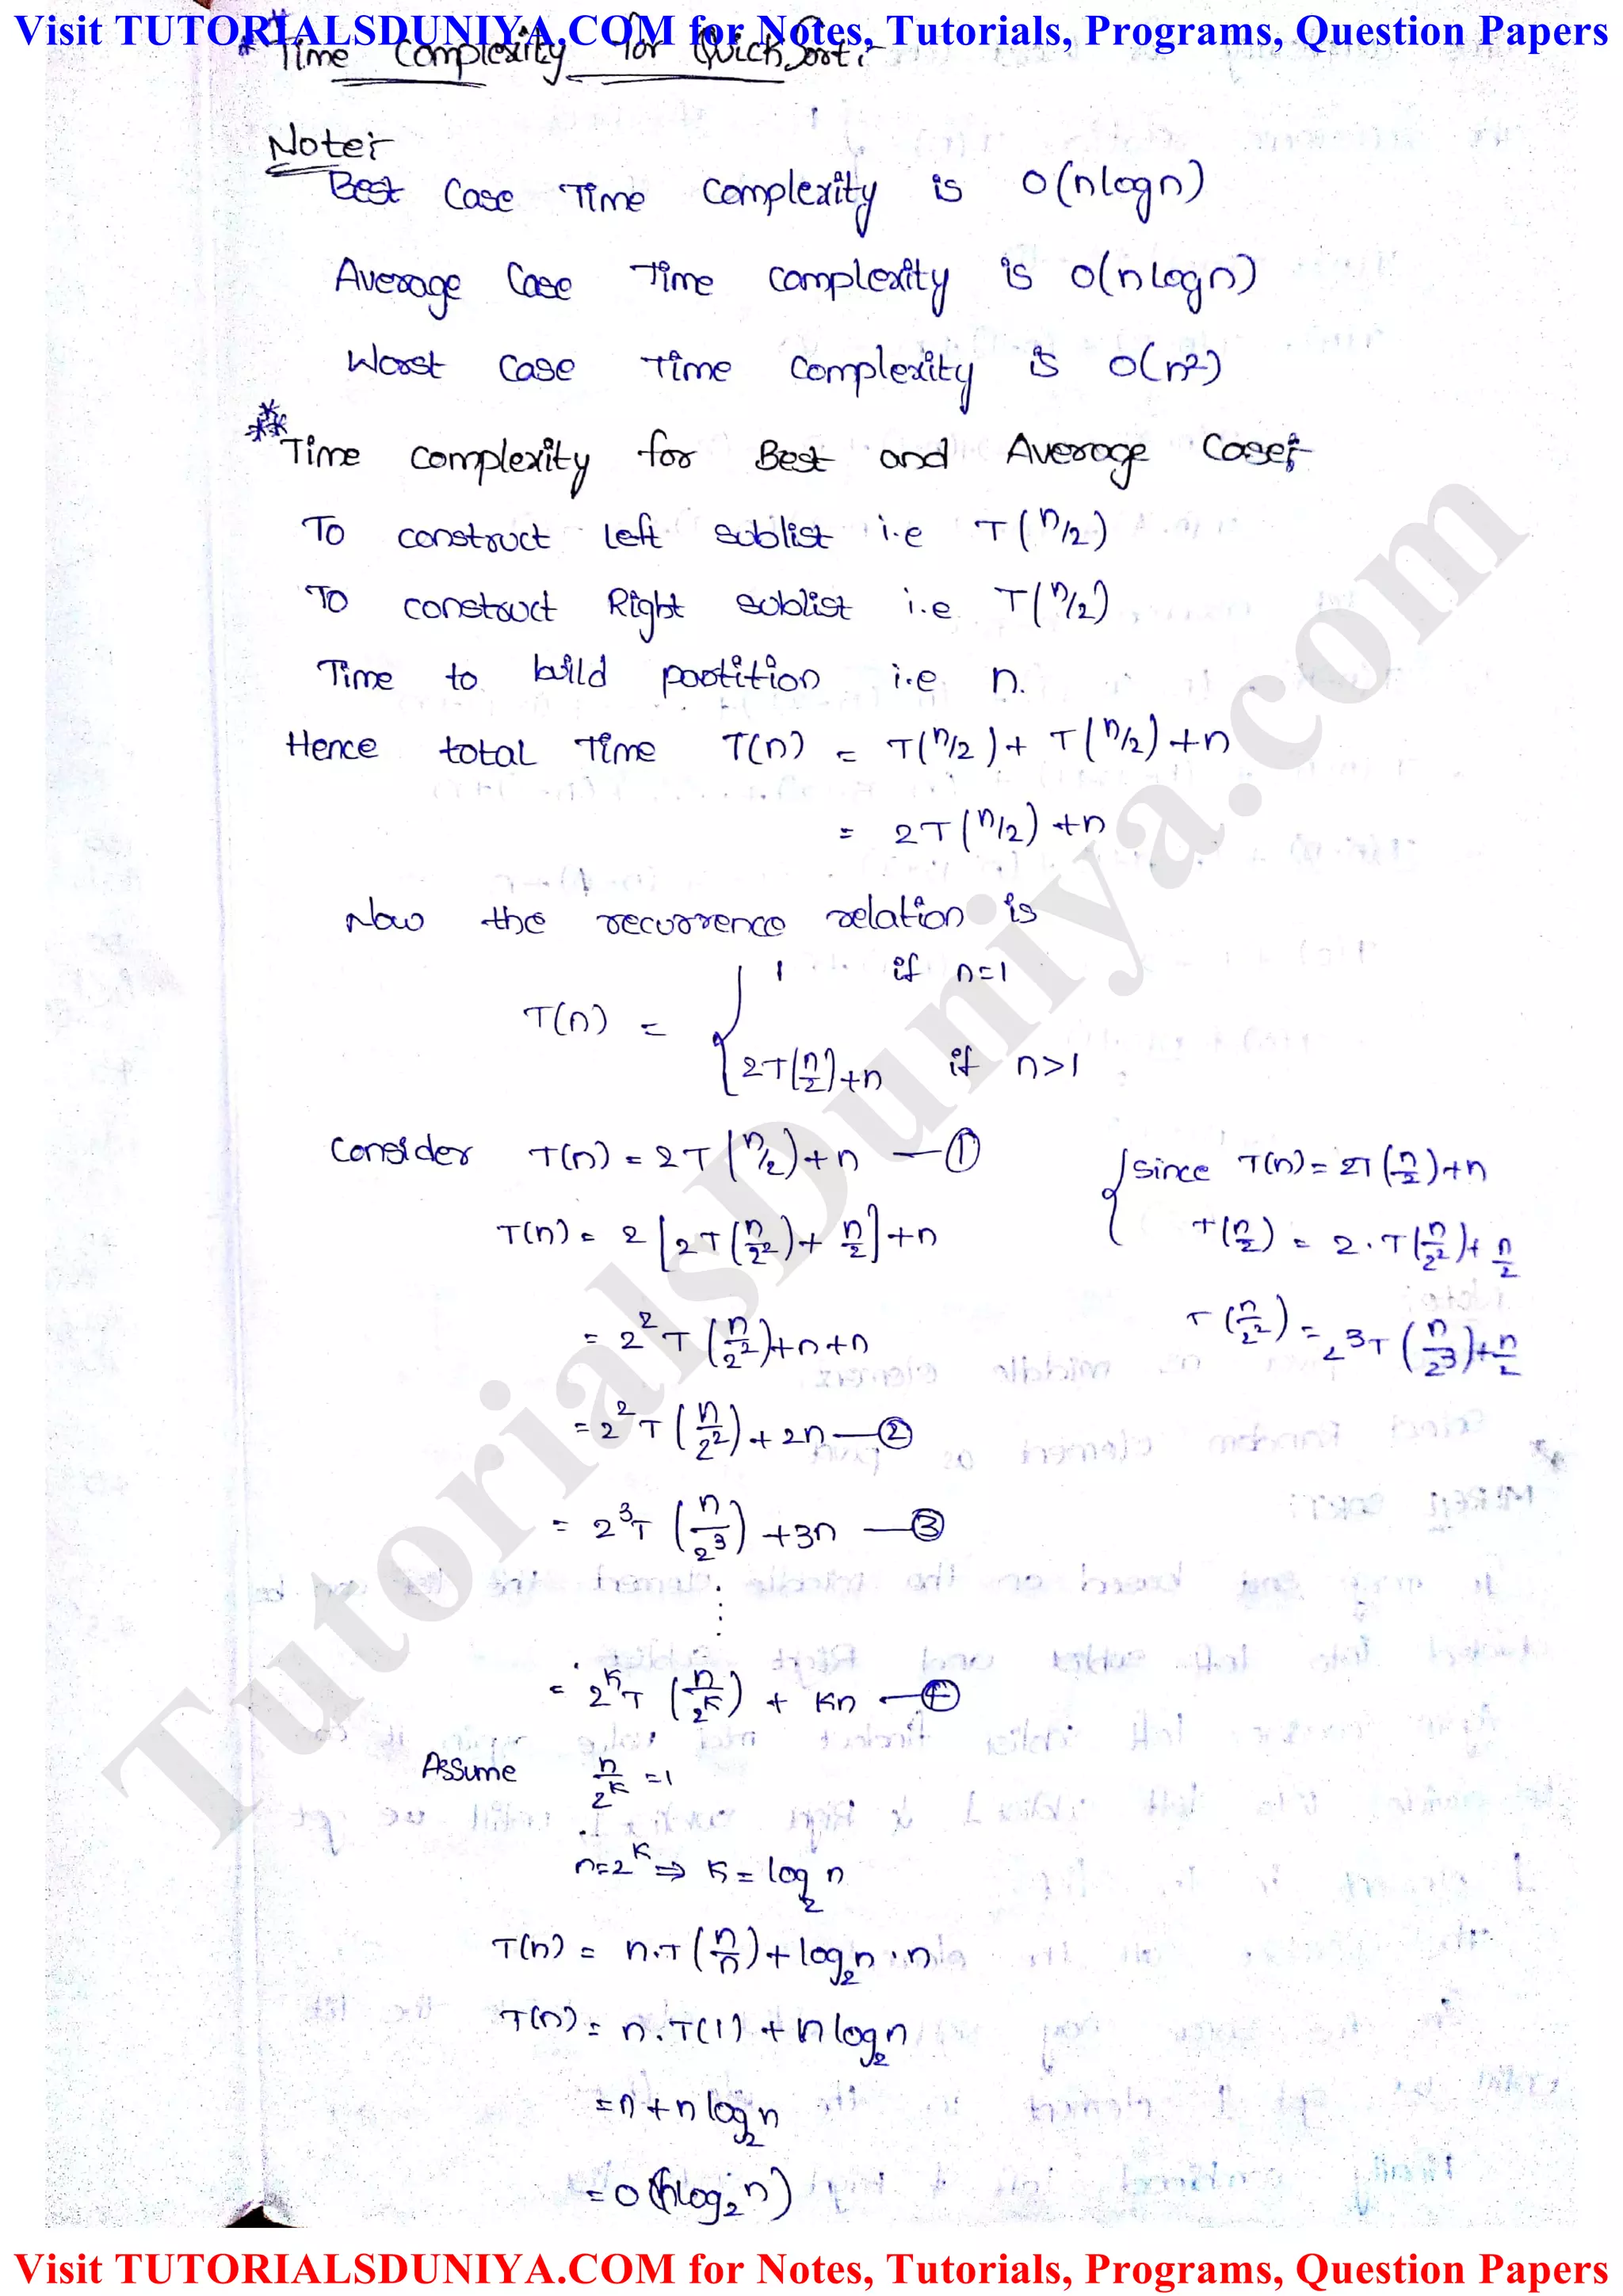 Visit TUTORIALSDUNIYA.COM for Notes, Tutorials, Programs, Question Papers
** Time Complexity for Quick Sort:-
Note:-
Best Case Time Complexity is O(nlogn)
Average Case Time Complexity is O(nlogn)
Worst Case Time Complexity is O(n²)
** Time complexity for Best and Average Case:-
To construct left sublist i.e T(n/2)
To construct Right sublist i.e T(n/2)
Time to build partition i.e n.
Hence total Time T(n) = T(n/2) + T(n/2) + n
= 2T(n/2) + n
Now the recurrence relation is
T(n) = { 1 if n=1
2T(n/2)+n if n>1
Consider T(n) = 2T(n/2)+n —①
T(n) = 2[2T(n/2²)+ n/2]+n
= 2²T(n/2²)+n+n
= 2²T(n/2²)+2n —②
= 2³T(n/2³)+3n —③
⋮
= 2ᴷT(n/2ᴷ) + Kn —④
{ Since T(n) = 2T(n/2)+n
T(n/2) = 2.T(n/2²)+n/2
T(n/2²) = 2³T(n/2³)+n/2
Assume n/2ᴷ = 1
n=2ᴷ ⇒ K = log₂n
T(n) = n.T(n/n)+log₂n.n
T(n) = n.T(1)+nlog₂n
=n+nlog₂n
=O(nlog₂n)
TutorialsDuniya.com
Visit TUTORIALSDUNIYA.COM for Notes, Tutorials, Programs, Question Papers